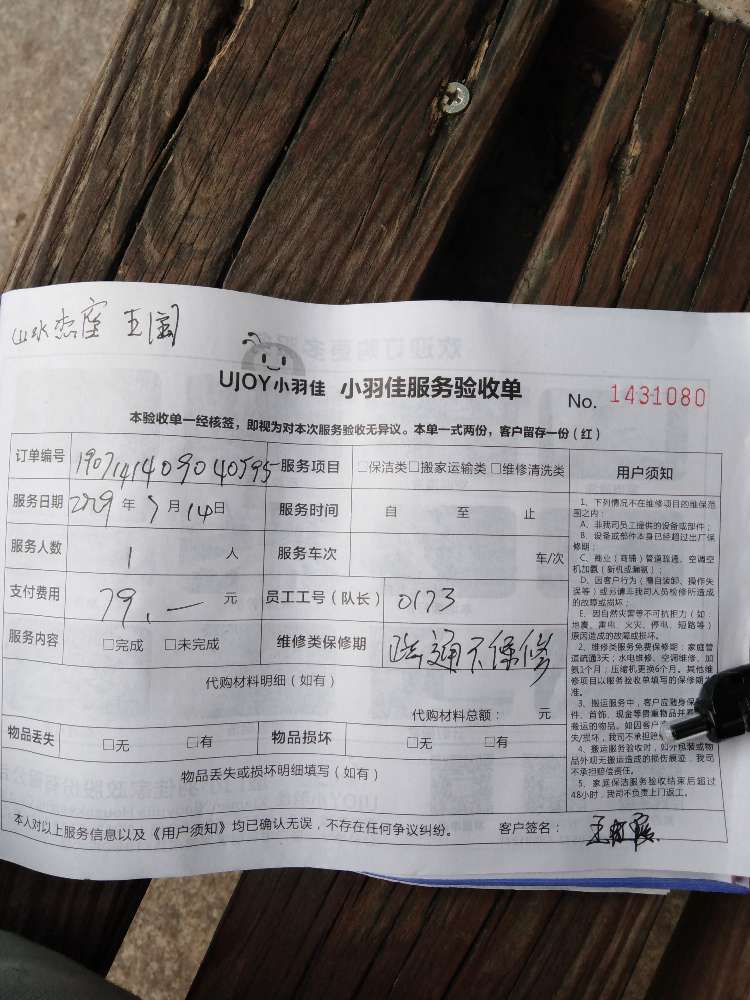 山水杰座 王国
UJOY小羽佳 小羽佳服务验收单 No. 1431080
本验收单一经核签，即视为对本次服务验收无异议。本单一式两份，客户留存一份（红）
订单编号 1907141409040595 服务项目 □保洁类□搬家运输类□维修清洗类
服务日期 2019年7月14日 服务时间 自 至 止
服务人数 1 人 服务车次 车/次
支付费用 79.— 元 员工工号（队长） 0173
服务内容 □完成 □未完成 维修类保修期 疏通不保修
代购材料明细（如有）
代购材料总额： 元
物品丢失 □无 □有 物品损坏 □无 □有
物品丢失或损坏明细填写（如有）
本人对以上服务信息以及《用户须知》均已确认无误，不存在任何争议纠纷。 客户签名：
用户须知
1、下列情况不在维修项目的维保范
围之内：
A、非我司员工提供的设备或部件；
B、设备或部件本身已经超过出厂保
修期；
C、商业（商铺）管道疏通、空调空
机加氨（新机或漏氨）；
D、因客户行为（擅自装卸、操作失
误等）或另请非我司人员检修所造成
的故障或损坏；
E、因自然灾害等不可抗拒力（如：
地震、雷电、火灾、停电、短路等）
原因造成的故障或损坏。
2、维修类服务免费保修期：家庭管
道疏通3天；水电维修、空调维修、加
氨1个月；压缩机更换6个月。其他维
修项目以服务验收单填写的保修期为
准。
3、搬运服务中，客户应随身保
件、首饰、现金等贵重物品并
搬运的物品。如因客户
失/损坏，我司不承担赔
4、搬运服务验收时，如外包装或物
品外观无搬运造成的损伤痕迹，我司
不承担赔偿责任。
5、家庭保洁服务验收结束后超过
48小时，我司不负责上门返工。